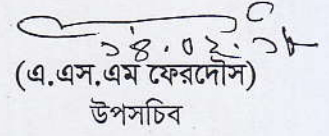 ১৪.০২.১৮
(এ.এস.এম ফেরদৌস)
উপসচিব